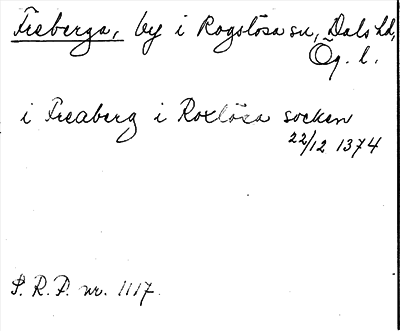 Freberga, by i Rogslösa sn, Dals hd,
Ög. l.
i Freaberg i Roxlösa socken
22/12 1374
S. R. P. nr. 1117.